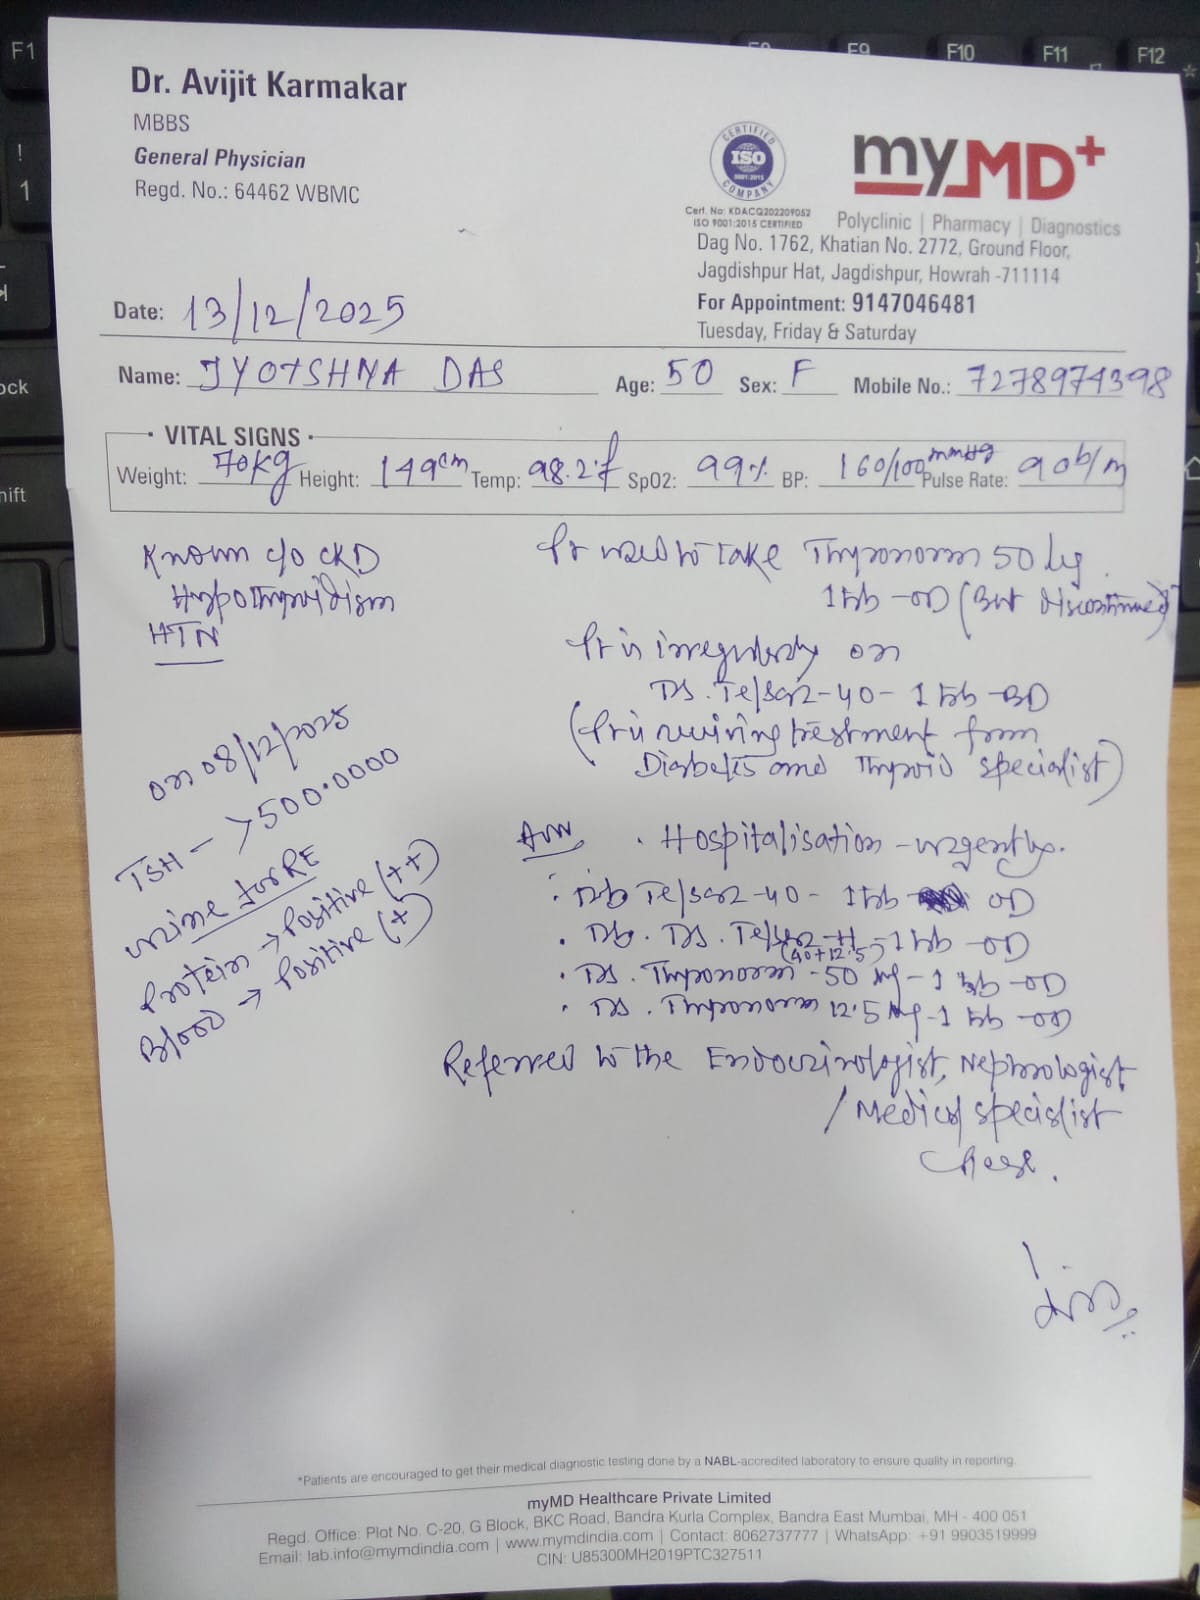 F1
F9
F10
F11
F12
Dr. Avijit Karmakar
MBBS
General Physician
Regd. No.: 64462 WBMC
CERTIFIED
ISO
9001:2015
COMPANY
Cert. No: KDACQ202209052
ISO 9001:2015 CERTIFIED
myMD+
Polyclinic | Pharmacy | Diagnostics
Dag No. 1762, Khatian No. 2772, Ground Floor,
Jagdishpur Hat, Jagdishpur, Howrah -711114
For Appointment: 9147046481
Tuesday, Friday & Saturday
Date: 13/12/2025
Name: JYOTSHNA DAS Age: 50 Sex: F Mobile No.: 7278974398
VITAL SIGNS
Weight: 70Kg Height: 149cm Temp: 98.2°f SpO2: 99% BP: 160/100mmHg Pulse Rate: 90b/m
Known c/o CKD
Hypothyroidism
HTN
Pt used to take Thyronorm 50
1 tab - OD (But Discontinued)
Pt is irregularly on
Telsar-40 - 1 tab - BD
(Pt is receiving treatment from
Diabetes and Thyroid specialist)
on 08/12/2025
TSH - >500.0000
urine for RE
Protein → Positive (++)
Blood → Positive (+)
Adv
. Hospitalisation - urgently.
Telsar-40 - 1 tab OD
. Telsar-H - 1 tab - OD
(40+12.5)
. Thyronorm - 50 - 1 tab - OD
. Thyronorm 12.5 - 1 tab - OD
Referred to the Endocrinologist, Nephrologist
/ Medical specialist
*Patients are encouraged to get their medical diagnostic testing done by a NABL-accredited laboratory to ensure quality in reporting.
myMD Healthcare Private Limited
Regd. Office: Plot No. C-20, G Block, BKC Road, Bandra Kurla Complex, Bandra East Mumbai, MH - 400 051
Email: lab.info@mymdindia.com | www.mymdindia.com | Contact: 8062737777 | WhatsApp: +91 9903519999
CIN: U85300MH2019PTC327511